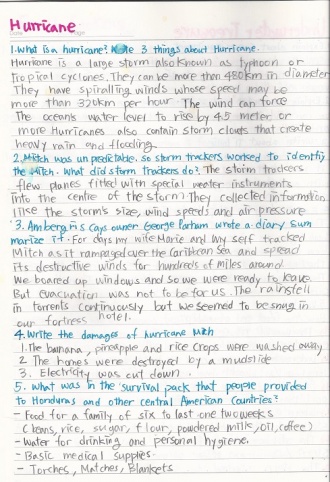 Hurricane
1. What is a hurricane? Write 3 things about Hurricane.
Hurricane is a large storm also known as typhoon or
tropical cyclones. They can be more then 480km in diameter
They have spiralling winds whose speed may be
more than 320km per hour The wind can force
The oceans water level to rise by 4.5 meter or
more Hurricanes also contain storm clouds that create
heavy rain and flooding.
2. Mitch was unpredictable, so storm trackers worked to identify
the Mitch. What did storm trackers do? The storm trackers
flew planes fitted with special weter instruments
into the centre of the storm. They collected information
like the storm's size, wind speeds and air pressure
3. Ambergris cays owner George Parham wrote a diary Sum
marize it. For days my wife Marie and my self tracked
Mitch as it rampaged over the Caribbean Sea and spread
its destructive winds for hundreds of miles around
We boared up windows and so we were ready to leave.
But evacuation was not to be for us. The rainsfell
in torrents continuously but we seemed to be snug in
our fortress hotel.
4. Write the damages of hurricane Mitch
1. The banana, pineapple and rice crops were washed away
2. The homes were destroyed by a mudslide
3. Electricity was cut down.
5. What was in the survival pack that people provided
to Honduras and other central American Cantries?
- Food for a family of six to last one two weeks
(beans, rice, sugar, flour, powdered milk, oil, coffee)
- Water for drinking and personal hygiene.
- Basic medical supplies.
- Torches, Matches, Blankets